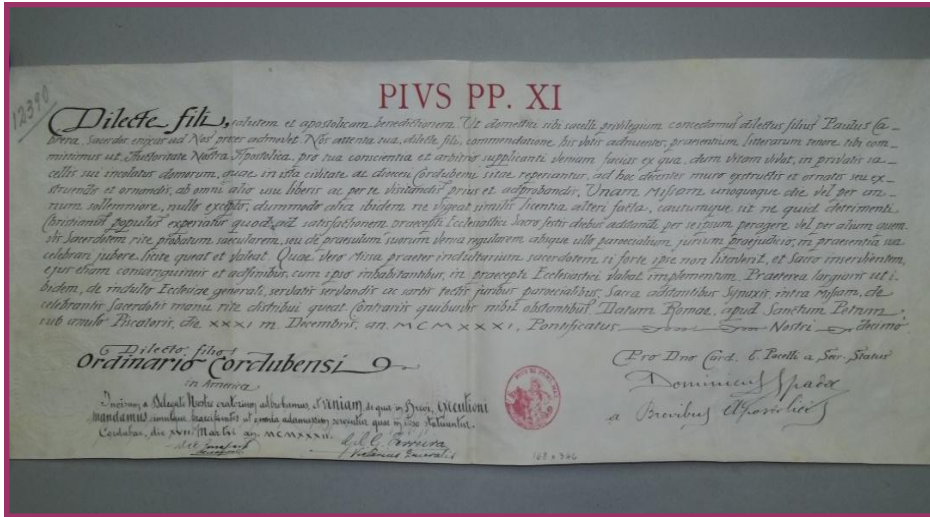 12390
PIVS PP. XI
Dilecte fili, salutem et apostolicam benedictionem. Ut domestici tibi sacelli privilegium concedamus dilectus filius Paulus Ca-
brera, Sacerdos enixas ad Nos preces admovet. Nos attenta tua, dilecte fili, commendatione his votis adnuentes, praesentium litterarum tenore tibi com-
mittimus ut Authoritate Nostra Apostolica, pro tua conscientia et arbitrio supplicanti veniam facias ex qua, dum vitam vivat, in privatis sa-
cellis sui incolatus domorum, quae in ista civitate ac dioecesi Cordubensi sitae reperiantur, ad hoc decenter muro extructis et ornatis seu ex-
struendis et ornandis, ab omni alio usu liberis ac per te visitandis prius et adprobandis, Unam Missam unoquoque die vel per an-
num sollemniore, nullo excepto, dummodo alia ibidem ne vigeat similis licentia alteri facta, cautumque sit ne quid detrimenti
Christianus populus experiatur quoad satisfactionem praecepti Ecclesiastici Sacro festis diebus adstandi per seipsum peragere, vel per alium quem-
vis Sacerdotem rite probatum saecularem, seu de praesulum suorum venia regularem, absque ullo paroecialium jurium praejudicio, in praesentia sua
celebrari jubere licite queat et valeat. Quae vero Missa praeter indultarium sacerdotem si forte ipse non litaverit, et Sacro inservientem,
ejus etiam consanguineis et adfinibus, cum ipso inhabitantibus, in praecepti Ecclesiastici valeat implementum. Praeterea largimur ut i-
bidem, de indulto Ecclesiae generali, servatis servandis ac sartis tectis juribus paroecialibus, Sacra adstantibus Synaxis, intra Missam, de
celebrantis Sacerdotis manu rite distribui queat. Contrariis quibuslibet nihil obstantibus. Datum Romae, apud Sanctum Petrum,
sub anulo Piscatoris, die XXXI m. Decembris, an. MCMXXXI, Pontificatus Nostri decimo.
Dilecto filio
Ordinario Cordubensi
in America
Pro Dno Card. E. Pacelli a Secr. Status
Dominicus Spada
a Brevibus Apostolicis
a Delegato Nostro oratorium adprobamus, et veniam, de qua in Brevi, executioni
mandamus
Cordubae, die XVII Martii an. MCMXXXII.
Ferreira
Vicarius Generalis
162 x 366